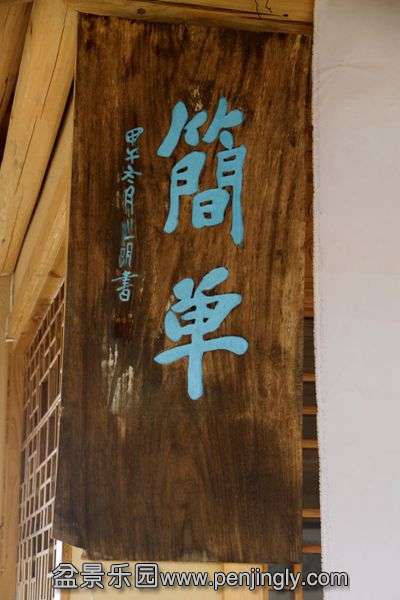 簡单
甲午冬明書
盆景乐园www.penjingly.com